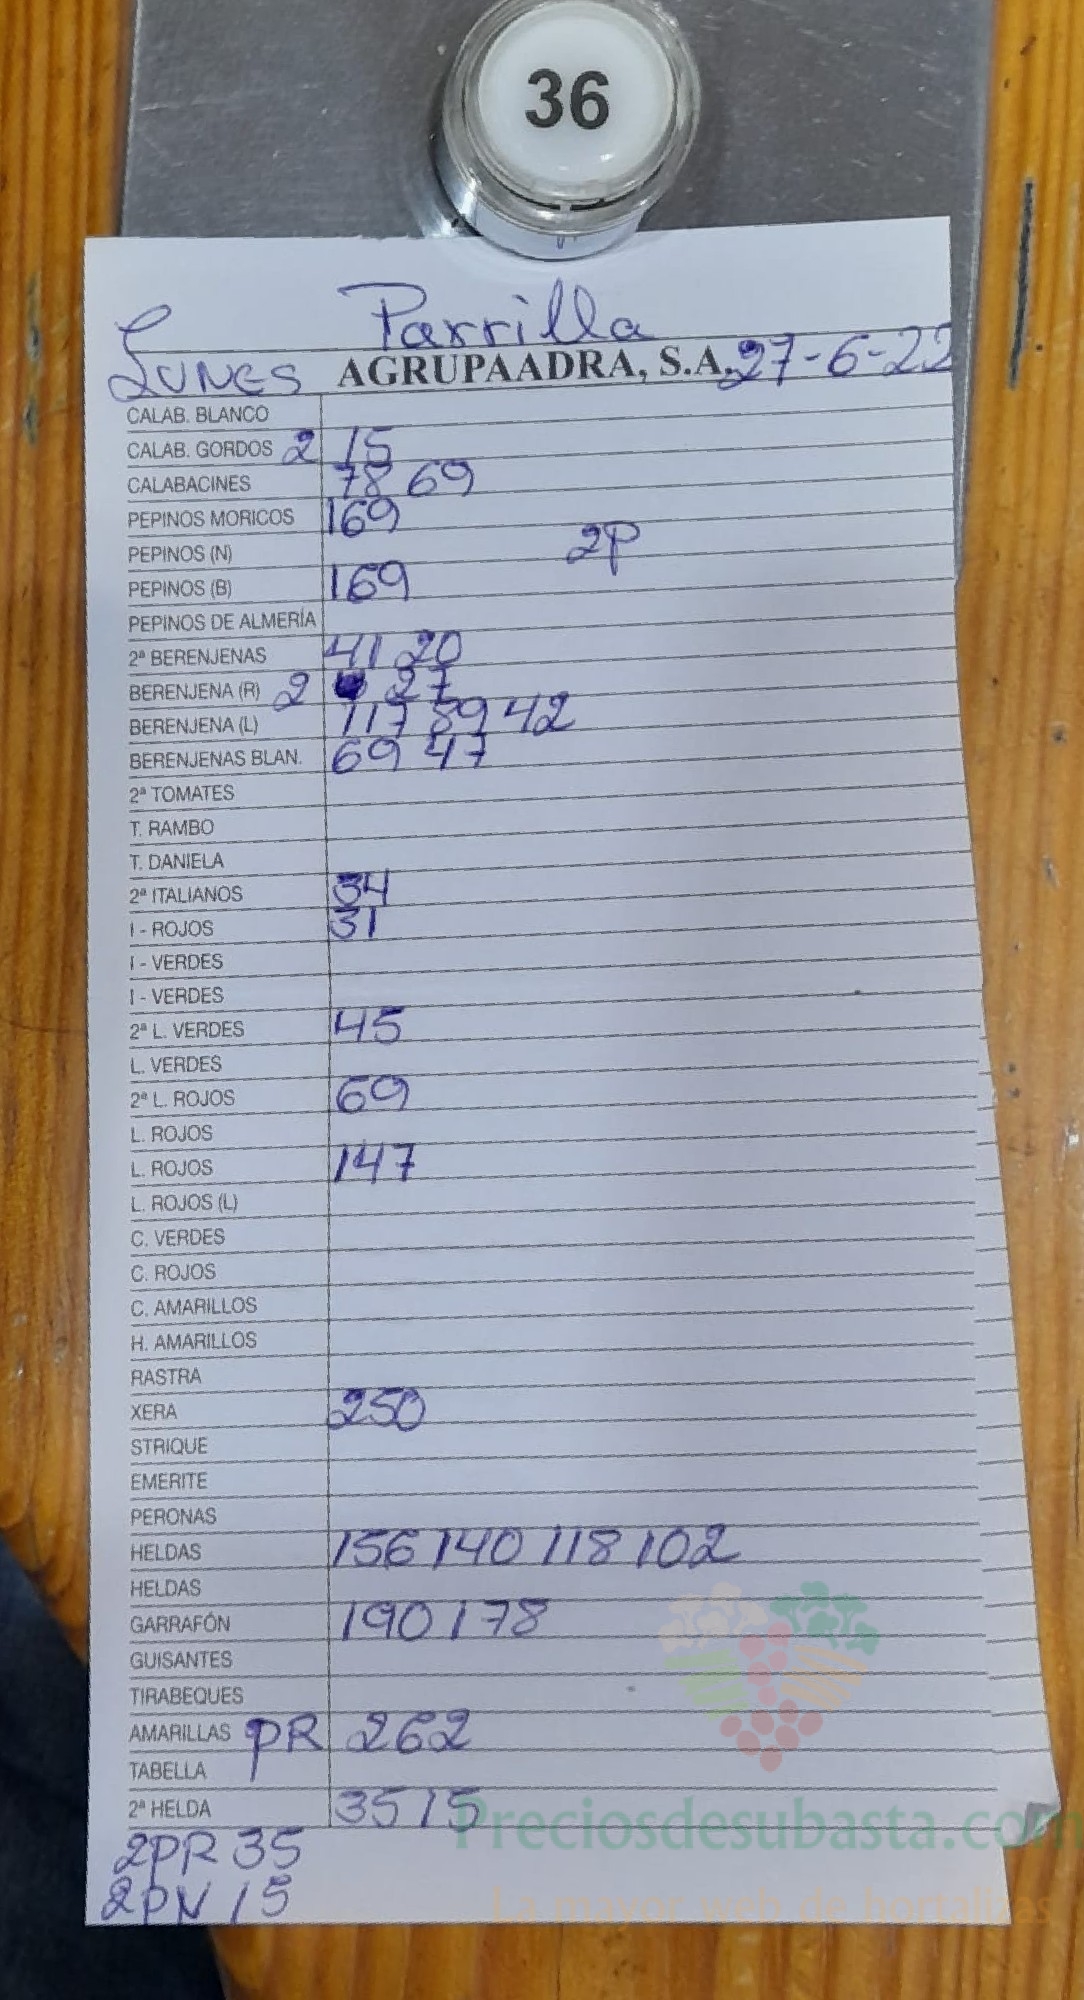 36
Parrilla
Lunes AGRUPAADRA, S.A. 27-6-22
CALAB. BLANCO
CALAB. GORDOS 2 15
CALABACINES 78 69
PEPINOS MORICOS 169
PEPINOS (N) 2P
PEPINOS (B) 169
PEPINOS DE ALMERÍA
2ª BERENJENAS 41 20
BERENJENA (R) 2 27
BERENJENA (L) 117 89 42
BERENJENAS BLAN. 69 47
2ª TOMATES
T. RAMBO
T. DANIELA
2ª ITALIANOS 34
I - ROJOS 31
I - VERDES
I - VERDES
2ª L. VERDES 45
L. VERDES
2ª L. ROJOS 69
L. ROJOS
L. ROJOS 147
L. ROJOS (L)
C. VERDES
C. ROJOS
C. AMARILLOS
H. AMARILLOS
RASTRA
XERA 250
STRIQUE
EMERITE
PERONAS
HELDAS 156 140 118 102
HELDAS
GARRAFÓN 190 178
GUISANTES
TIRABEQUES
AMARILLAS PR 262
TABELLA
2ª HELDA 35 15
Preciosdesubasta.com
2PR 35
2PN 15
La mayor web de hortalizas